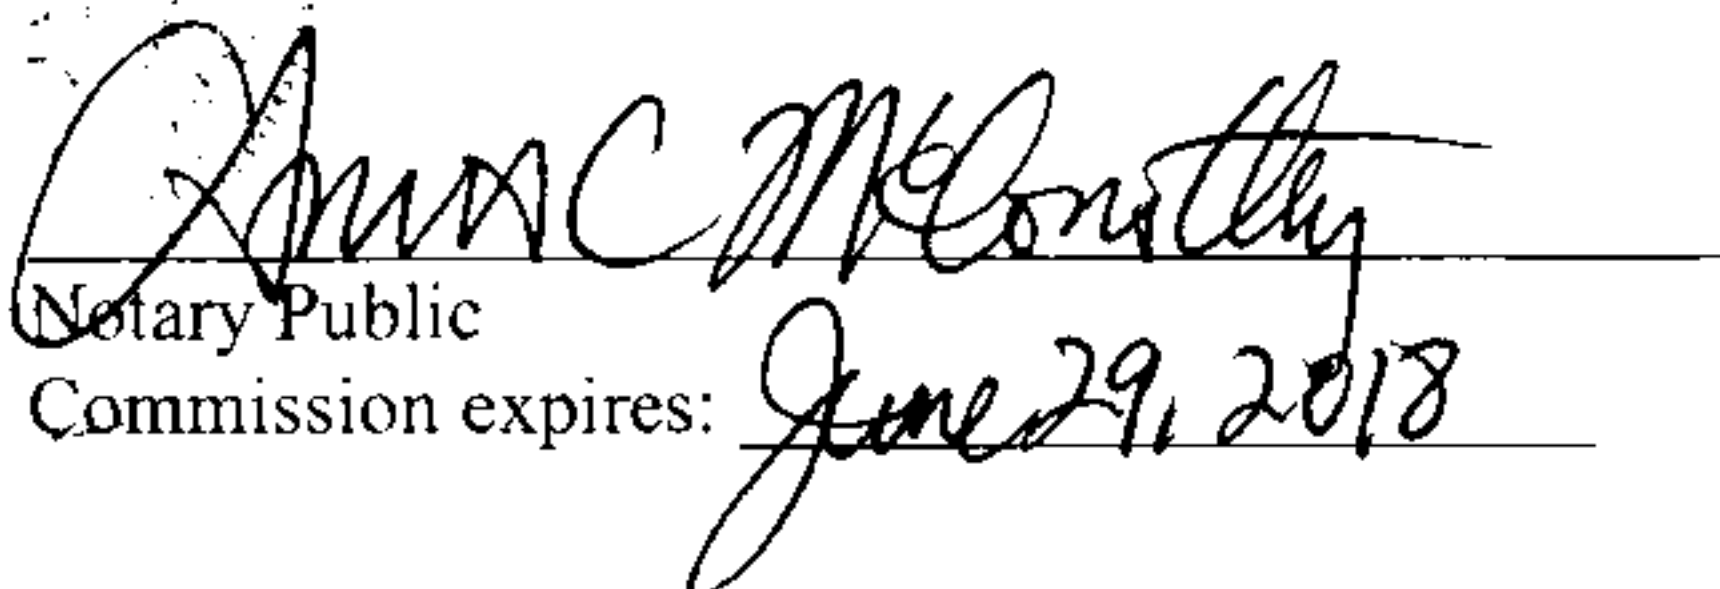 C McConathy
Notary Public
Commission expires: June 29, 2018